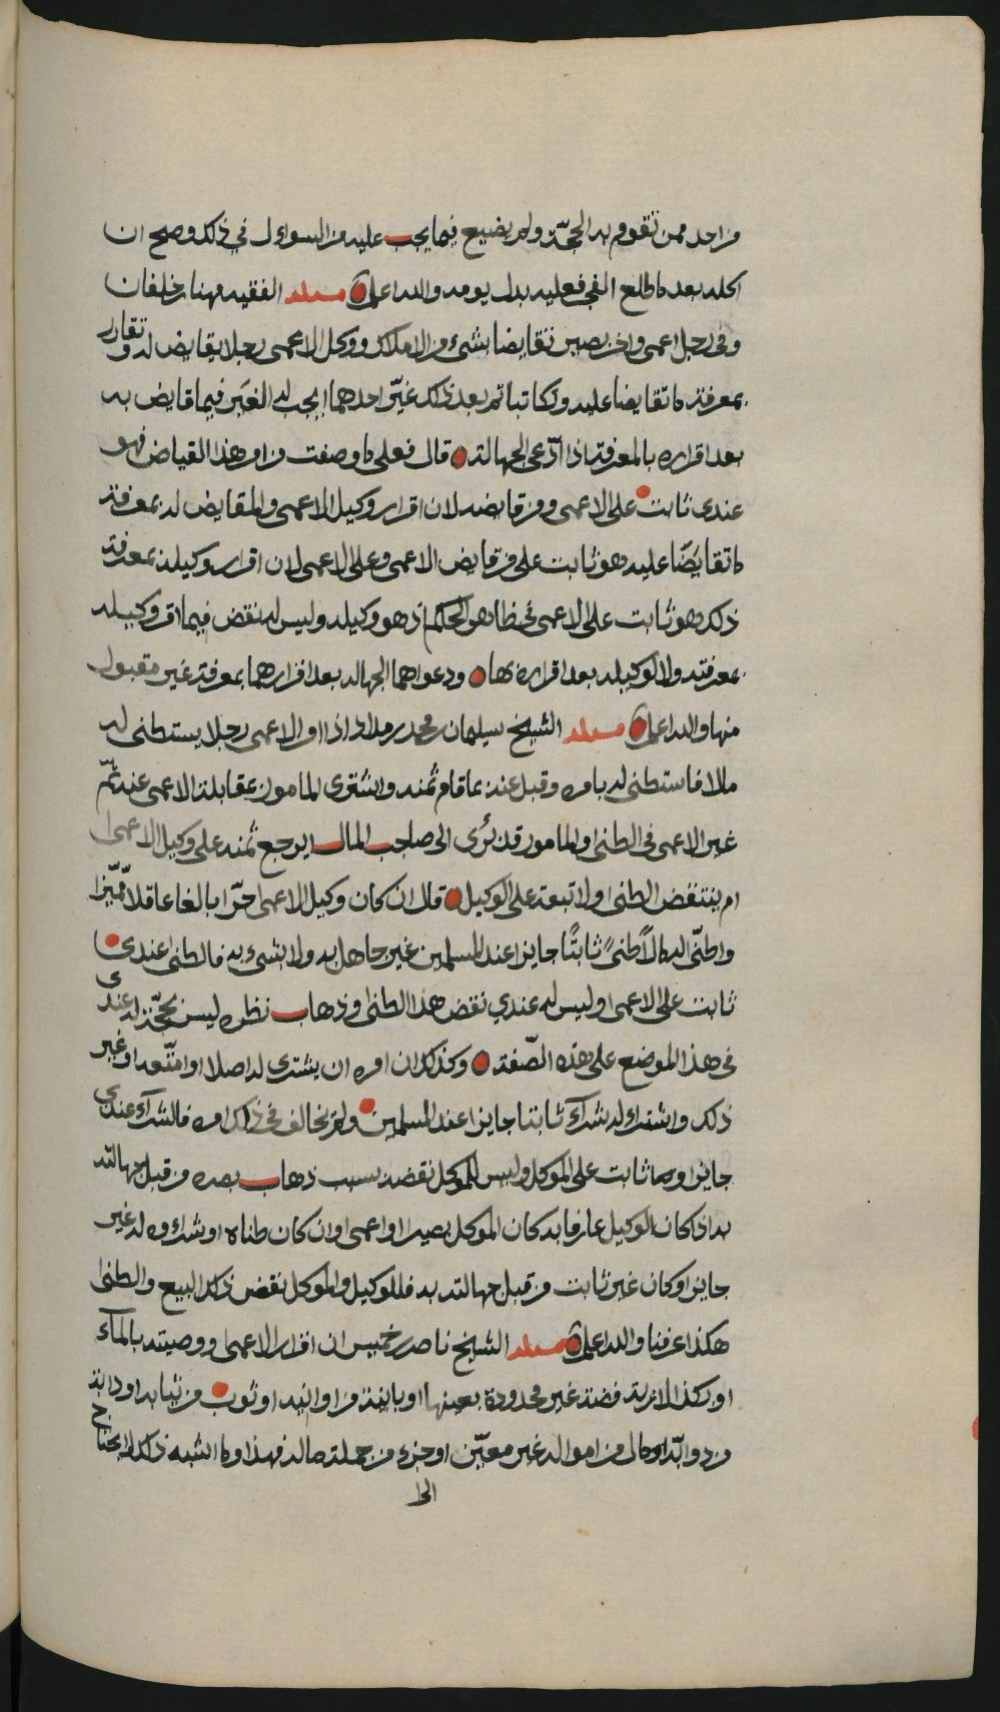 من احد ممن تقوم به الحجّة ولم يضيع فيما يجب عليه من السواءل في ذلك وصح ان
اكله بعد ما طلع الفجر فعليه بدل يومه والله اعلم مسئلة الفقيه مهنا بن خلفان
وفي رجل اعمى واخر بصير تقايضا بشيء من الاملاك ووكل الاعمى رجلا يقايض له وتقارر
بمعرفة ما تقايضا عليه وتكاتبا ثم بعد ذلك غيّر احدهما ايجب له الغير فيما قايض به
بعد اقراره بالمعرفة اذا ادّعى الجهالة قال فعلى ما وصفت من امر هذا القياض فهو
عندي ثابت على الاعمى ومن قايضه لان اقرار وكيل الاعمى والمقايض له بمعرفة
ما تقايضا عليه هو ثابت على من قايض الاعمى وعلى الاعمى لان اقرار وكيله بمعرفة
ذلك هو ثابت على الاعمى في ظاهر الحكم اذ هو وكيله وليس له نقض فيما اقر وكيله
بمعرفته ولا لوكيله بعد اقراره بها ودعواهما الجهالة بعد اقرارهما بمعرفة غير مقبول
منها والله اعلم مسئلة الشيخ سليمان بن محمد بن مداد اذا امر الاعمى رجلا يستطني له
مالا فاستطنى له بامره وقبل عنه بما قام ثمنه واشترى المامور بمقابلة الاعمى عنه ثمّ
غير الاعمى في الطنى والمامور قد برى الى صاحب المال ايرجع ثمنه على وكيل الاعمى
ام ينتقض الطنى ولا تبعة على الوكيل قال ان كان وكيل الاعمى حرّا بالغا عاقلا مميّزا
واطنى له مالاً طنىً ثابتًا جايزا عند المسلمين غير جاهل به ولا بشيء به فالطنى عندي
ثابت على الاعمى وليس له عندي نقض هذا الطنى وذهاب نظره ليس بحجّة له عندي
في هذا الموضع على هذه الصّفة وكذلك ان امره ان يشتري له اصلا او امتعة او غير
ذلك واشتراه له شرآء ثابتا جايزا عند المسلمين ولم يخالف في ذلك امره فالشرآء عندي
جايز اوصا ثابت على الموكل وليس للموكل نقضه بسبب ذهاب بصره من قبل جهالته
به اذا كان الوكيل عارفا به كان الموكل بصيرا او اعمى وان كان طناه او شراءه له غير
جايز او كان غير ثابت من قبل جهالته به فللوكيل والموكل نقض ذلك البيع والطنى
هكذا عرفنا والله اعلم مسئلة الشيخ ناصر بن خميس ان اقرار الاعمى ووصيته بالمآء
او بكذا لارية فضة غير محدودة بعينها او بانية من اوانيه او ثوب من ثيابه او دابة
من دوابّه او مال من امواله غير معيّن او جزء من جملة ماله فهذا وما اشبه ذلك لا يحتاج
الى